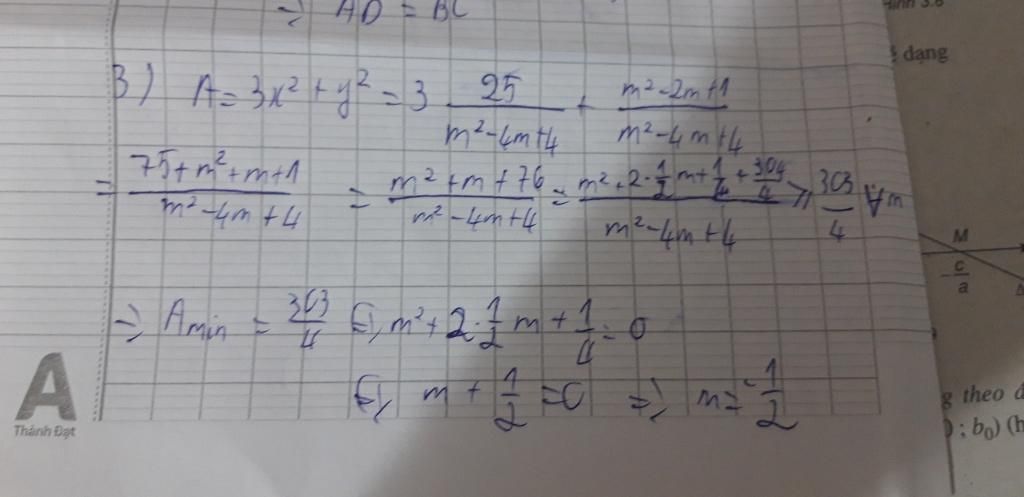 => AD = BC
3) A = 3x² + y² = 3 25/(m²-4m+4) + (m²-2m+1)/(m²-4m+4)
= (75+m²+m+1)/(m²-4m+4) = (m²+m+76)/(m²-4m+4) = (m²+2·1/2m+1/4+304/4)/(m²-4m+4) ≥ 303/4 ∀m
=> Amin = 303/4 <=> m²+2·1/2m+1/4=0
<=> m + 1/2 = 0 => m = -1/2
A
Thành Đạt
dạng
M
-c/a
g theo
; b₀) (h